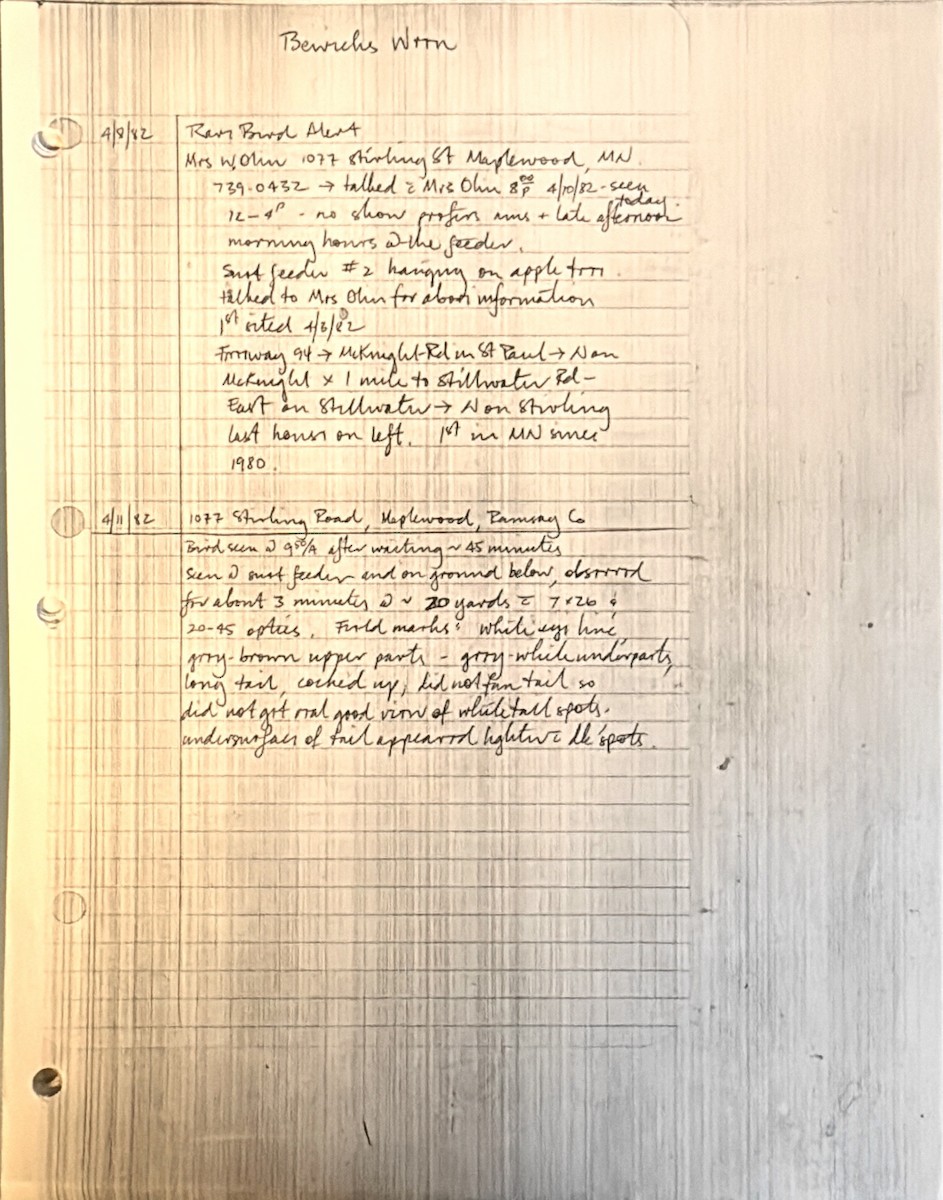 Bewicks Wren
4/8/82 Rare Bird Alert
Mrs W. Ohn 1077 Stirling St Maplewood, MN.
739-0432 → talked c̄ Mrs Ohn 8 00 P 4/10/82 - seen today.
12-4P - no show prefers ams + late afternoon
morning hours @ the feeder.
Suet feeder #2 hanging on apple tree.
talked to Mrs Ohn for above information
1st sited 4/3/82
Freeway 94 → McKnight Rd in St Paul → N on
McKnight x 1 mile to Stillwater Rd -
East on Stillwater → N on Stirling
last house on left. 1st in MN since
1980.
4/11/82 1077 Stirling Road, Maplewood, Ramsay Co
Bird seen @ 9 50/A after waiting ~ 45 minutes
Seen @ suet feeder and on ground below, observed
for about 3 minutes @ ~ 20 yards c̄ 7x26 &
20-45 optics. Field marks: white eye line,
grey-brown upper parts - grey-white underparts,
long tail, cocked up, did not fan tail so
did not get real good view of white tail spots.
undersurface of tail appeared light c̄ dk spots.